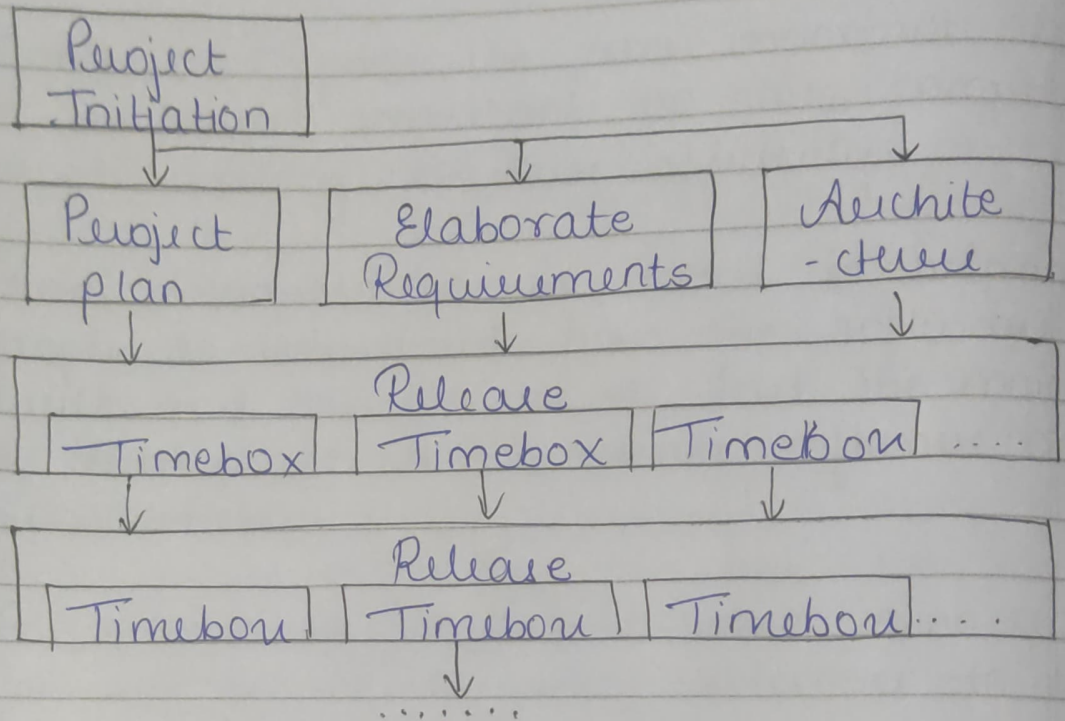 Project
Initiation
Project
plan
Elaborate
Requirements
Archite
-cture
Release
Timebox Timebox Timebox ....
Release
Timebox Timebox Timebox ....
.......